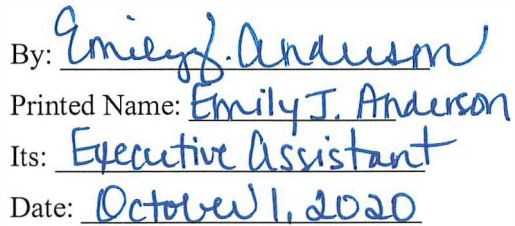 By: Emily J. Anderson
Printed Name: Emily J. Anderson
Its: Executive Assistant
Date: October 1, 2020